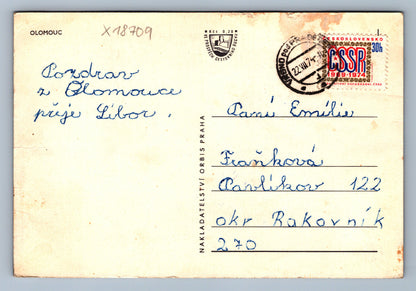 OLOMOUC
X18709
Pozdrav
z Olomouce
přeje Libor.
NAKLADATELSTVÍ ORBIS PRAHA
ČESKOSLOVENSKO
30h
ČSSR
1969-1974
Paní Emílie
Fraňková
Pavlíkov 122
okr Rakovník
270